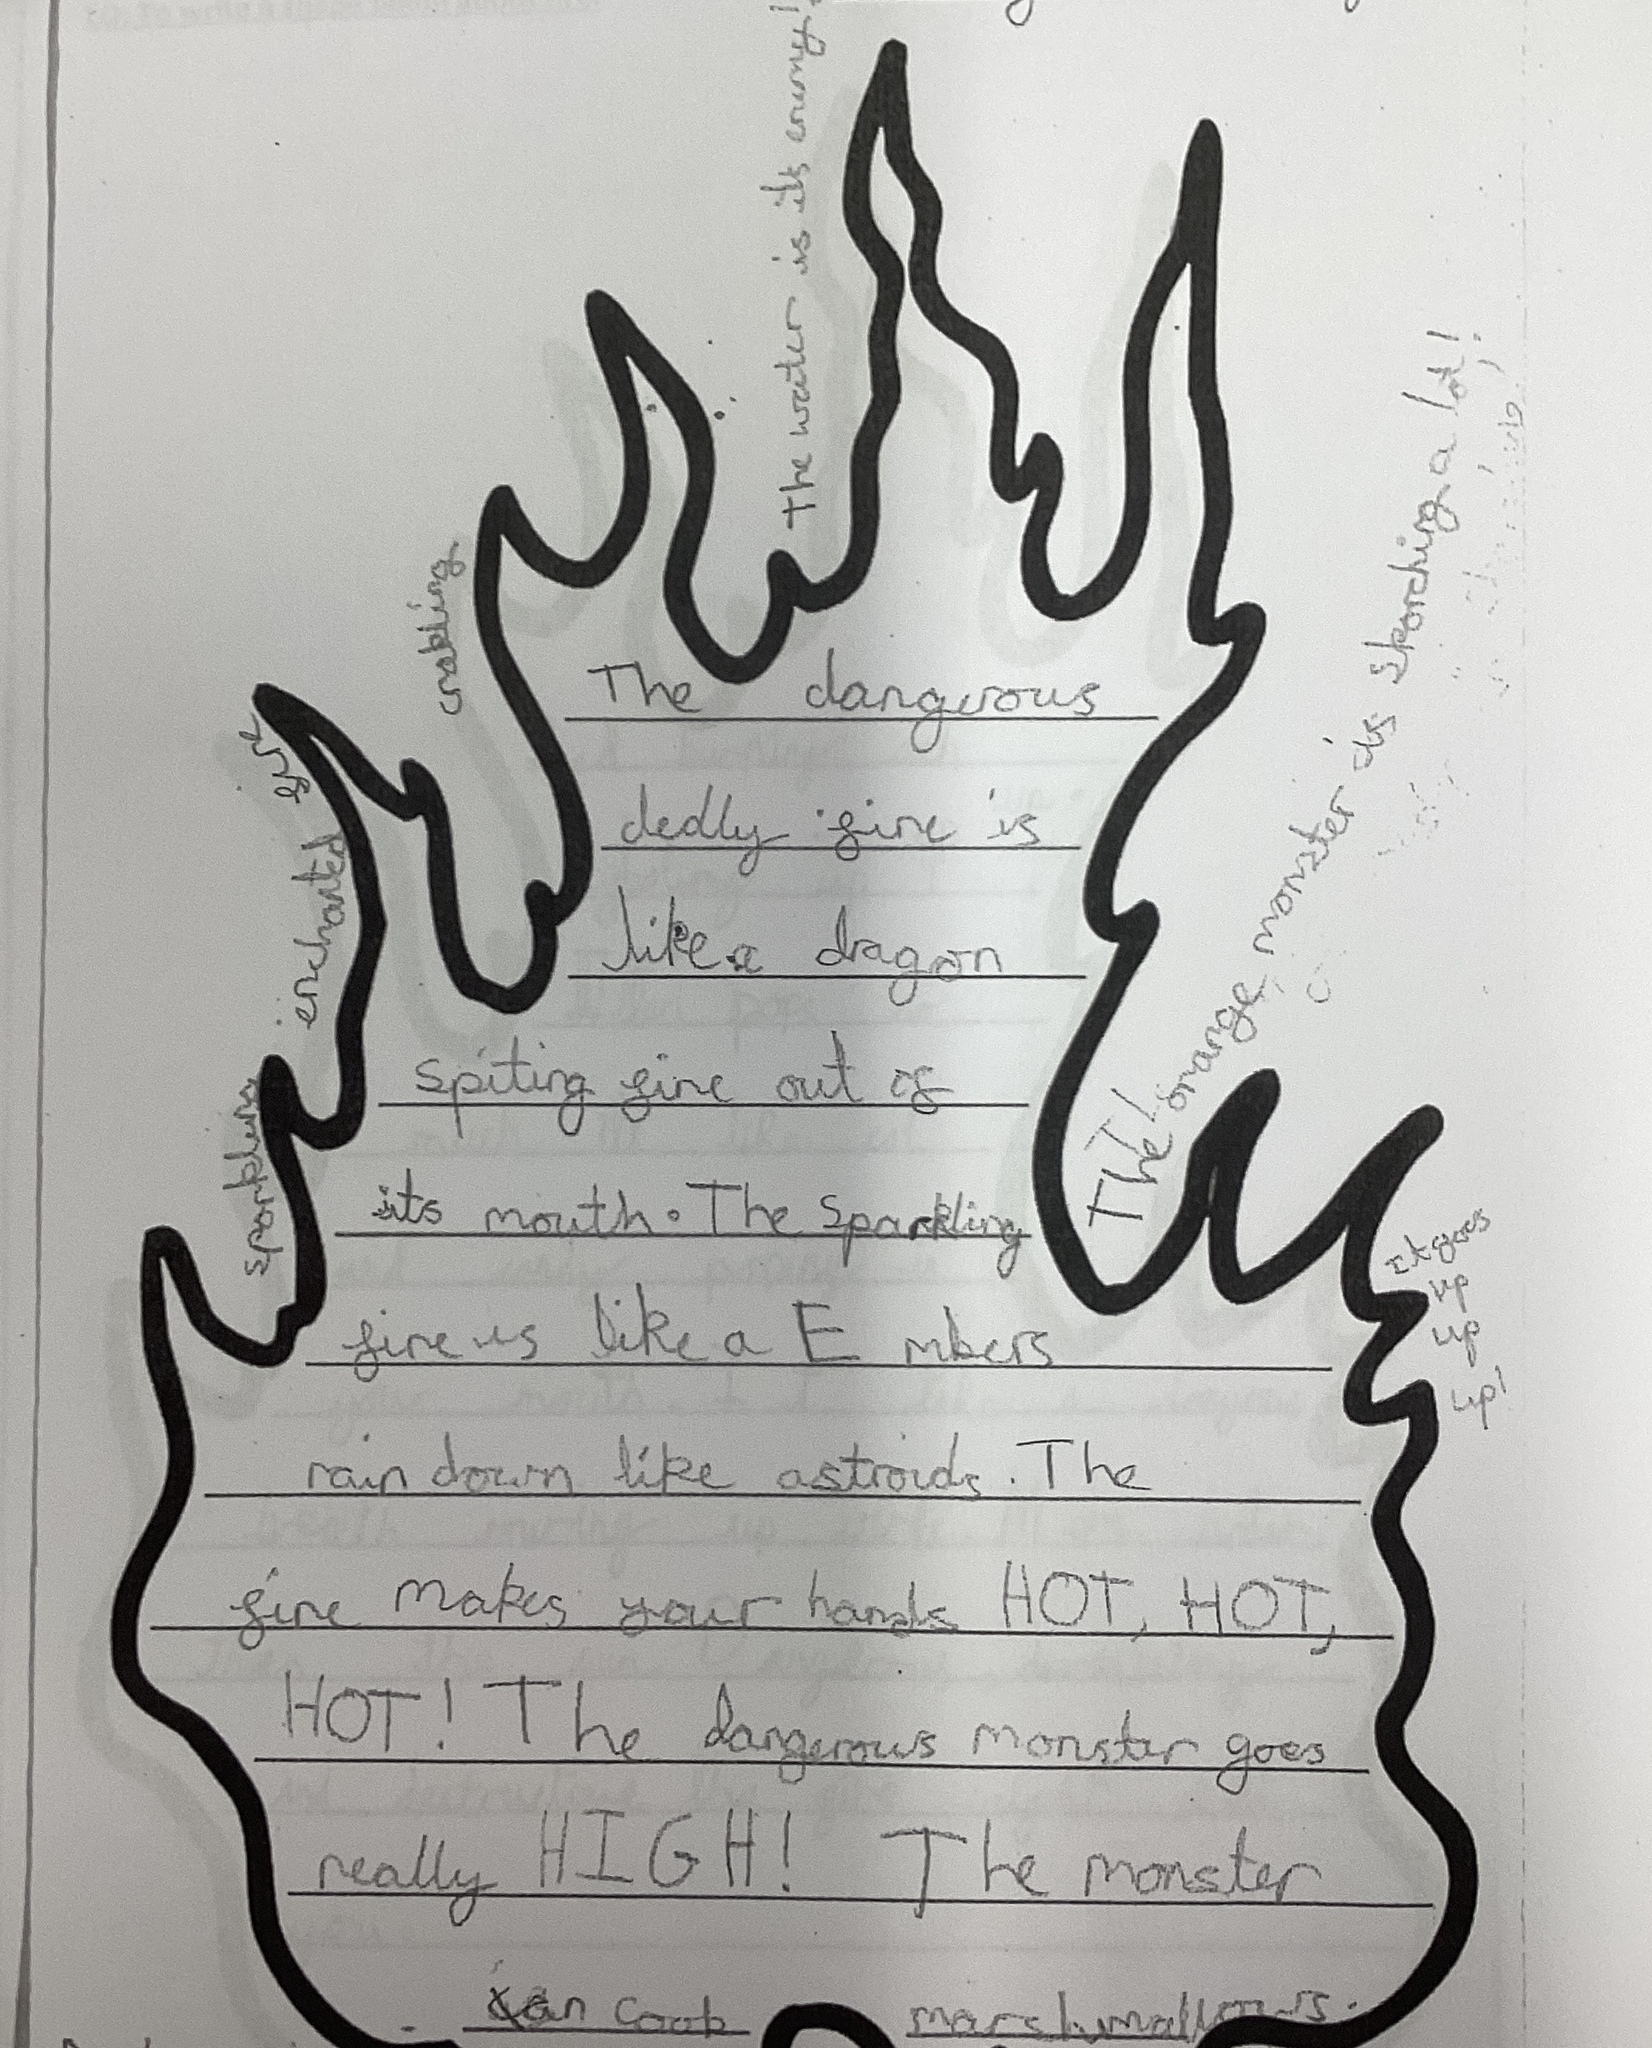 The water is its enemy!
crakling
enchanted
sparkling
The dangerous
dedly fire is
like a dragon
spiting fire out of
its mouth. The sparkling
fire us like a Embers
rain down like astroids. The
fire makes your hands HOT, HOT,
HOT! The dangerous monster goes
really HIGH! The monster
can cook marshmallows.
The orange monster is skorching a lot!
it goes
up
up
up!